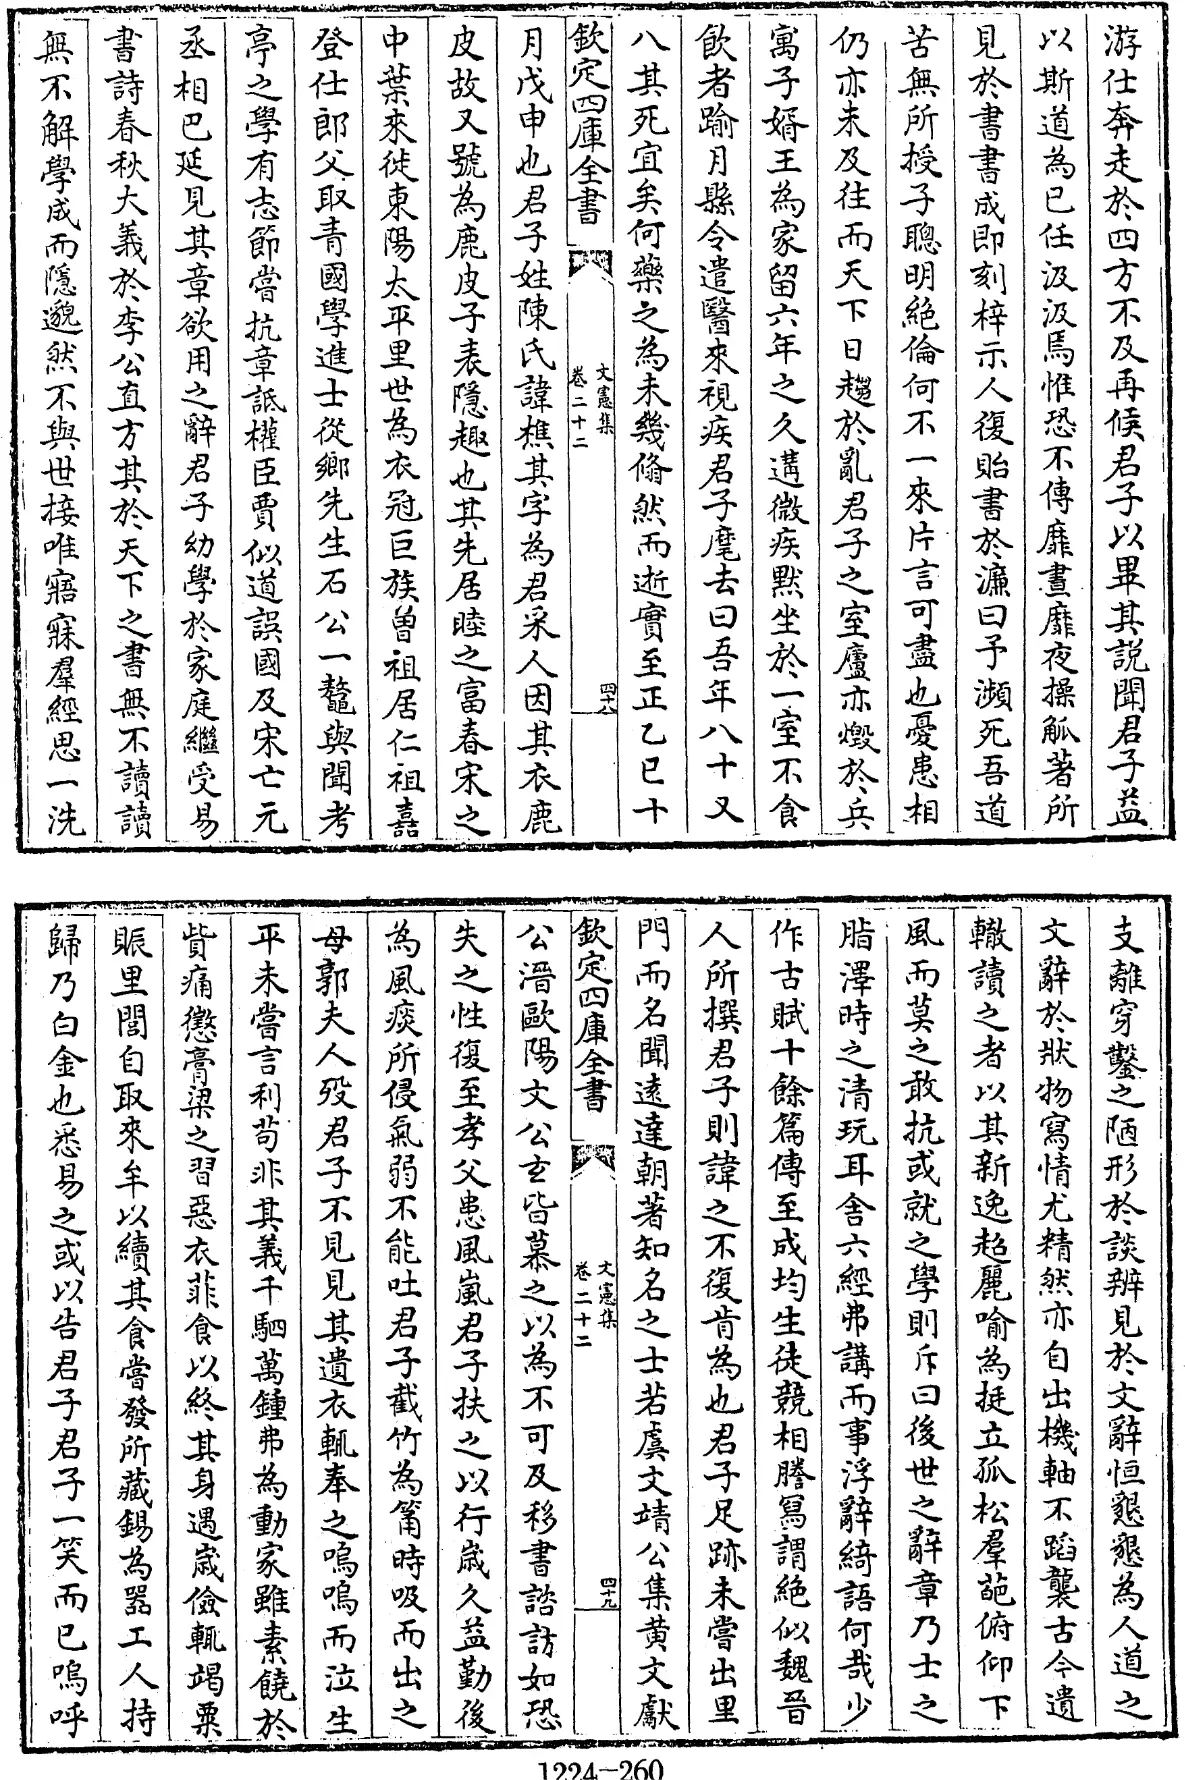 游仕奔走於四方不及再候君子以畢其説聞君子益
以斯道為已任汲汲焉惟恐不傳靡晝靡夜操觚著所
見於書書成即刻梓示人復貽書於濂曰予瀕死吾道
苦無所授子聰明絶倫何不一來片言可盡也憂患相
仍亦未及往而天下日趨於亂君子之室廬亦燬於兵
寓子婿王為家留六年之久遘微疾默坐於一室不食
飲者踰月縣令遣醫來視疾君子麾去曰吾年八十又
八其死宜矣何藥之為未幾翛然而逝實至正乙巳十
欽定四庫全書
文憲集
卷二十二
四十八
月戊申也君子姓陳氏諱樵其字為君采人因其衣鹿
皮故又號為鹿皮子表隱趣也其先居睦之富春宋之
中葉來徙東陽太平里世為衣冠巨族曾祖居仁祖嘉
登仕郎父取青國學進士從鄉先生石公一鼇與聞考
亭之學有志節嘗抗章詆權臣賈似道誤國及宋亡元
丞相巴延見其章欲用之辭君子幼學於家庭繼受易
書詩春秋大義於李公直方其於天下之書無不讀讀
無不解學成而隱邈然不與世接唯寤寐羣經思一洗
支離穿鑿之陋形於談辨見於文辭恒懇懇為人道之
文辭於狀物寫情尤精然亦自出機軸不蹈襲古今遺
轍讀之者以其新逸超麗喻為挺立孤松羣葩俯仰下
風而莫之敢抗或就之學則斥曰後世之辭章乃士之
脂澤時之清玩耳舍六經弗講而事浮辭綺語何哉少
作古賦十餘篇傳至成均生徒競相謄寫謂絶似魏晉
人所撰君子則諱之不復肯為也君子足跡未嘗出里
門而名聞遠達朝著知名之士若虞文靖公集黄文獻
欽定四庫全書
文憲集
卷二十二
四十九
公溍歐陽文公玄皆慕之以為不可及移書諮訪如恐
失之性復至孝父患風嵐君子扶之以行歲久益勤後
為風痰所侵氣弱不能吐君子截竹為筩時吸而出之
母郭夫人歿君子不見見其遺衣輒奉之嗚嗚而泣生
平未嘗言利苟非其義千駟萬鍾弗為動家雖素饒於
貲痛懲膏粱之習惡衣菲食以終其身遇歲儉輒竭粟
賑里閭自取來牟以續其食嘗發所藏錫為噐工人持
歸乃白金也悉易之或以告君子君子一笑而已嗚呼
1224-260